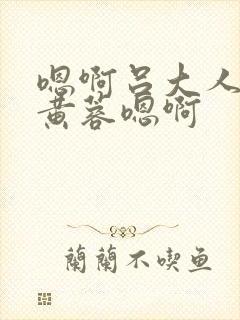 嗯啊吕大人
黄蓉嗯啊
蘭蘭不喫鱼